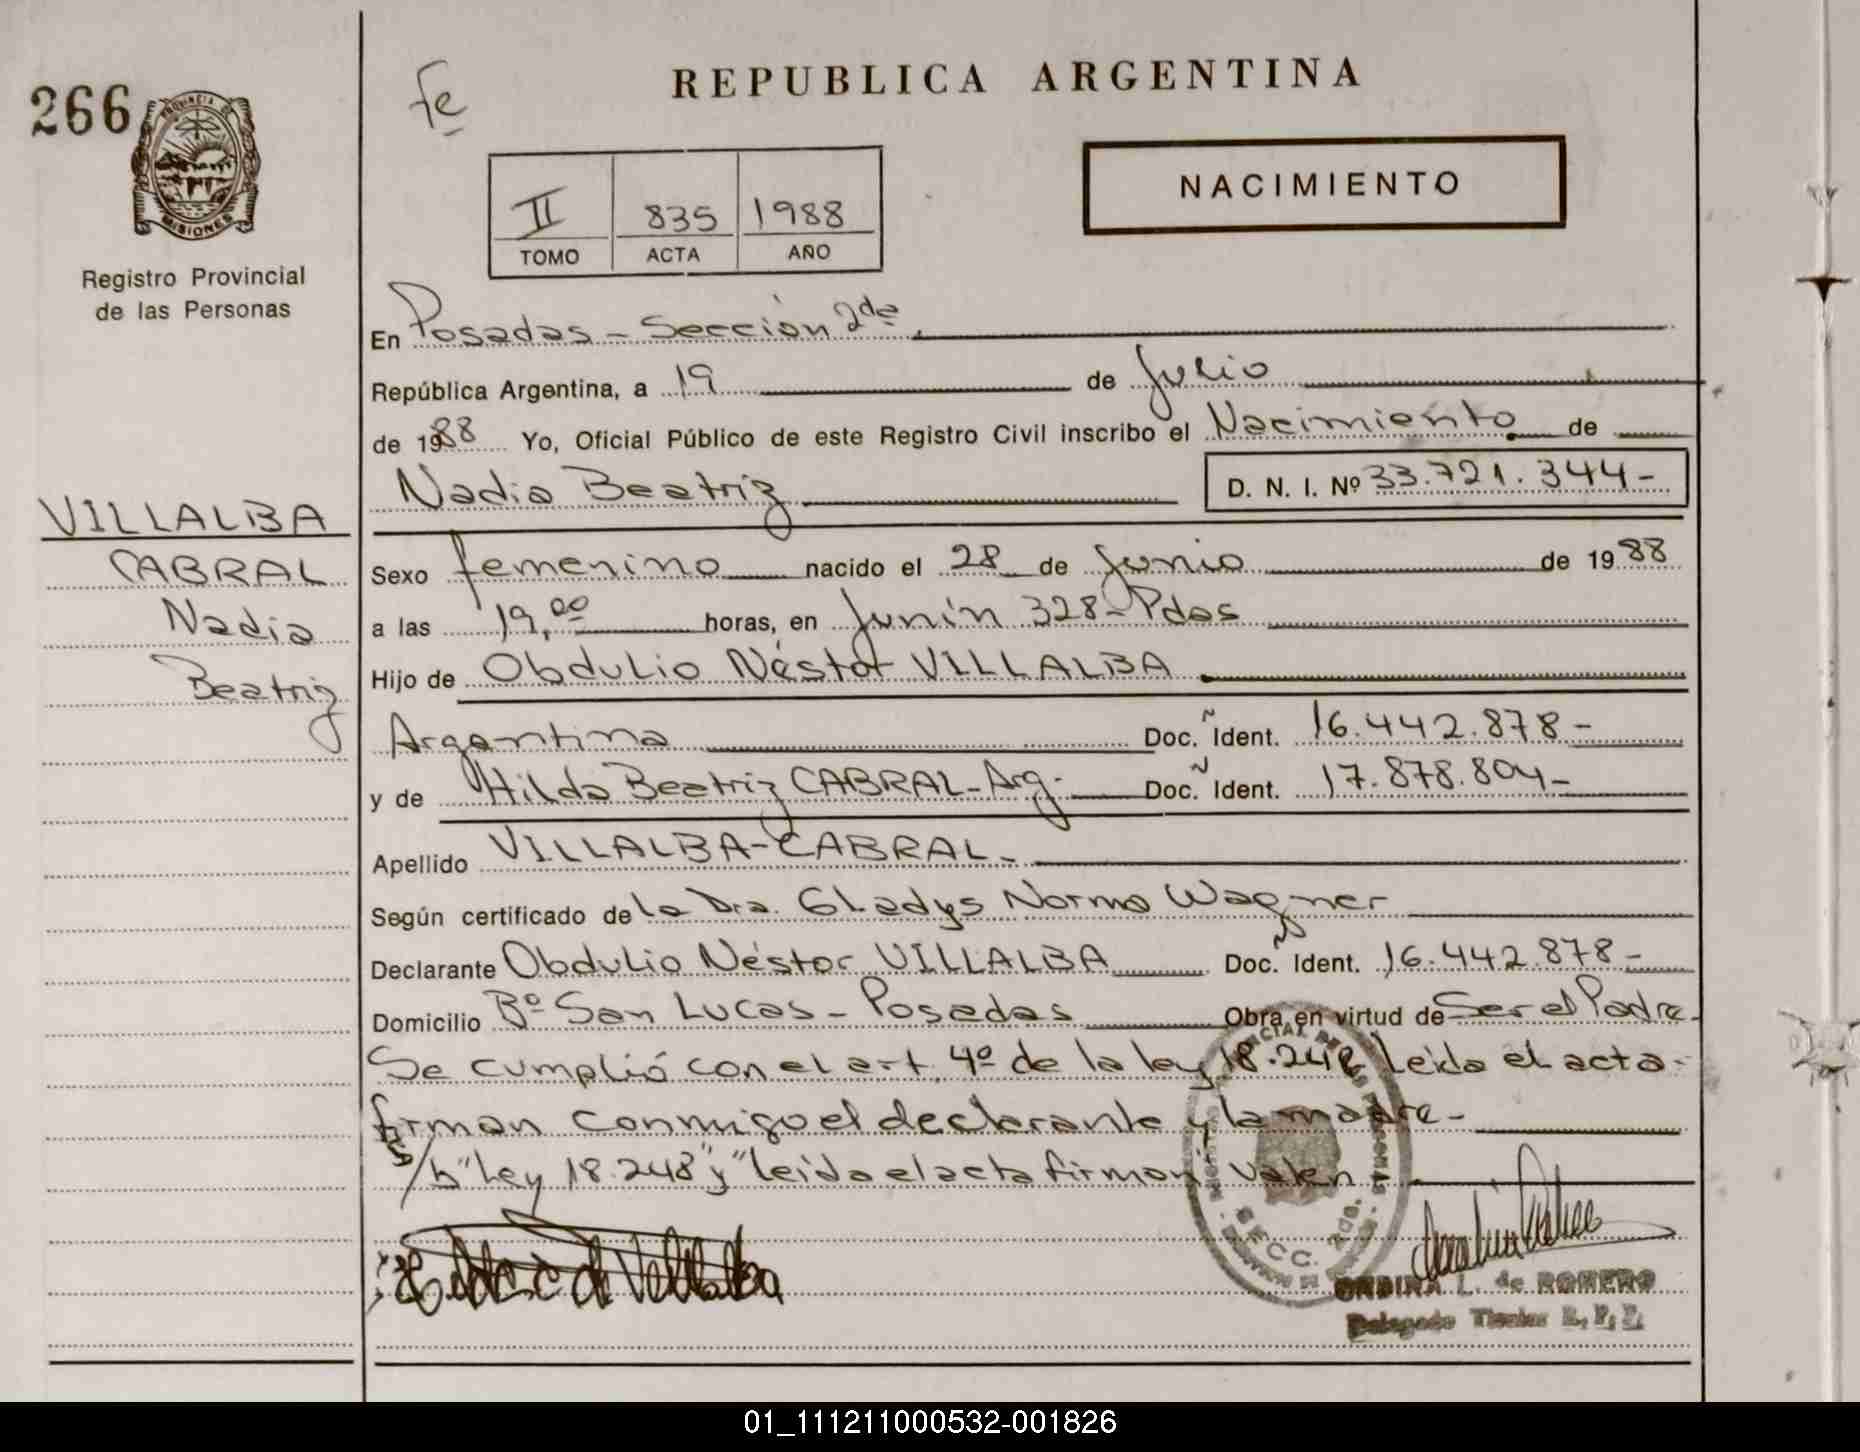 266
PROVINCIA DE
MISIONES
Registro Provincial
de las Personas
VILLALBA
CABRAL
Nadia
Beatriz
Fe
REPUBLICA ARGENTINA
NACIMIENTO
II 835 1988
TOMO ACTA AÑO
En Posadas - Sección 2da
República Argentina, a 19 de Julio
de 1988 Yo, Oficial Público de este Registro Civil inscribo el Nacimiento de
Nadia Beatriz D. N. I. Nº 33.721.344-
Sexo femenino nacido el 28 de Junio de 1988
a las 19,00 horas, en Junín 328-Pdas
Hijo de Obdulio Néstor VILLALBA
Argentina Doc. Ñ Ident. 16.442.878-
y de Hilda Beatriz CABRAL-Arg- Doc. Ñ Ident. 17.878.804-
Apellido VILLALBA-CABRAL-
Según certificado de la Dra. Gladys Norma Wagner
Declarante Obdulio Néstor VILLALBA Doc. Ñ Ident. 16.442.878-
Domicilio Bº San Lucas - Posadas Obra en virtud de Ser el Padre
Se cumplió con el art. 4º de la ley 18.248 Leída el acta-
firman conmigo el declarante y la madre-
s/b "Ley 18.248" y "leída el acta firman" valen
SECC. 2da.
ONDINA L. de ROMERO
Delegado Titular R. P. P.
01_111211000532-001826